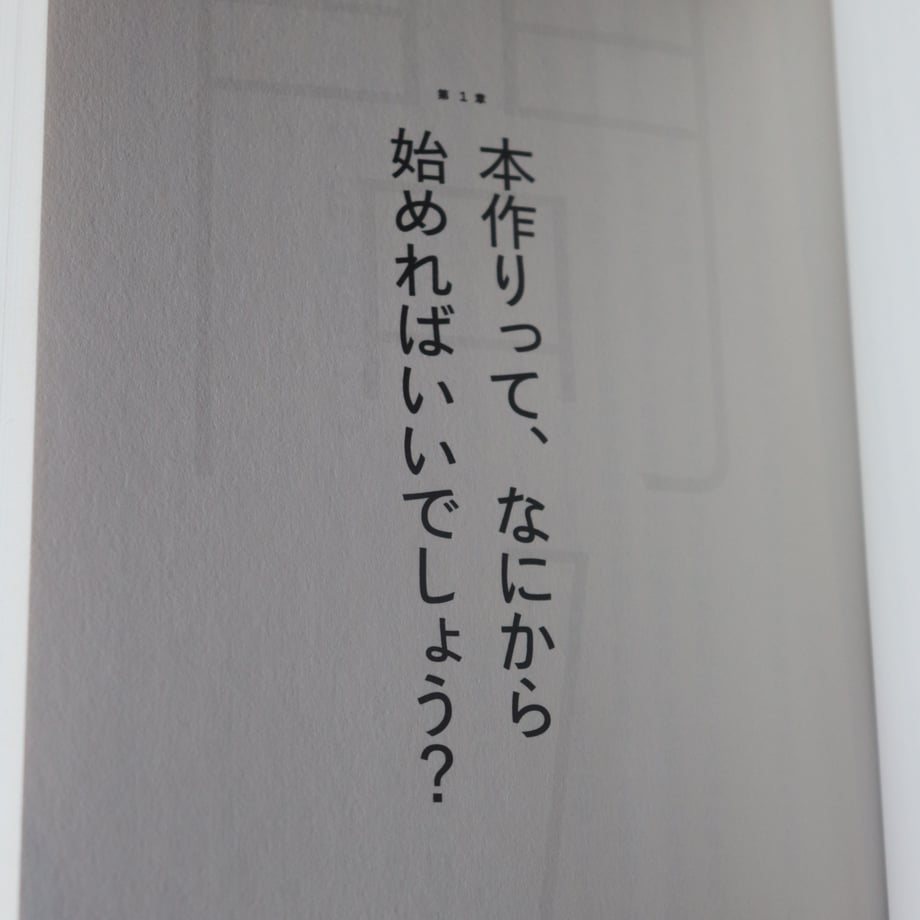 第1章
本作りって、なにから
始めればいいでしょう？